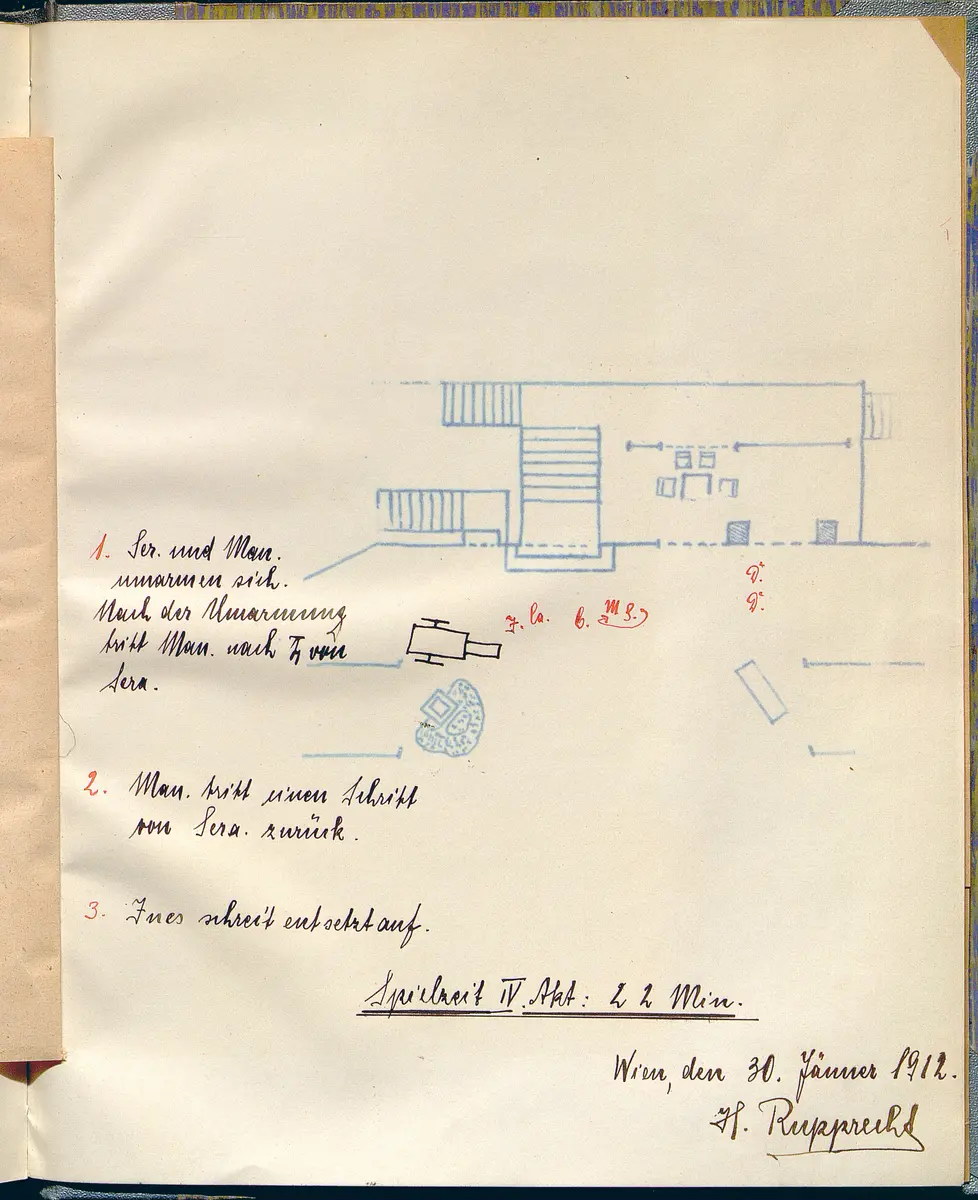 1. Ser. und Man.
umarmen sich.
Nach der Umarmung
tritt Man. nach von
Sera.
J. La. B. M S.
D.
D.
2. Man. tritt einen Schritt
von Sera. zurück.
3. Ines schreit entsetzt auf.
Spielzeit IV. Akt: 22 Min.
Wien, den 30. Jänner 1912.
H. Rupprecht